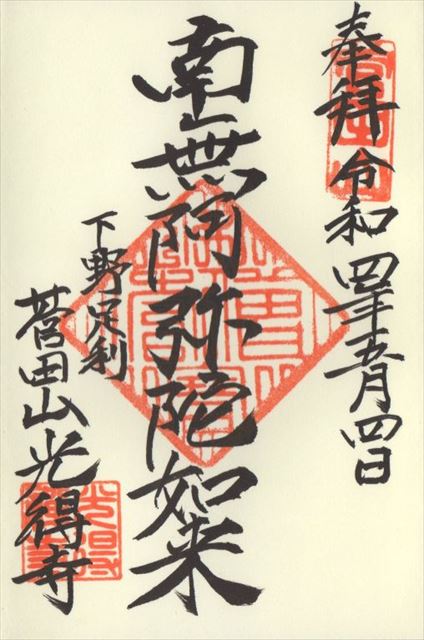 奉拝 令和四年五月四日
南無阿弥陀如来
下野足利
菅田山光得寺